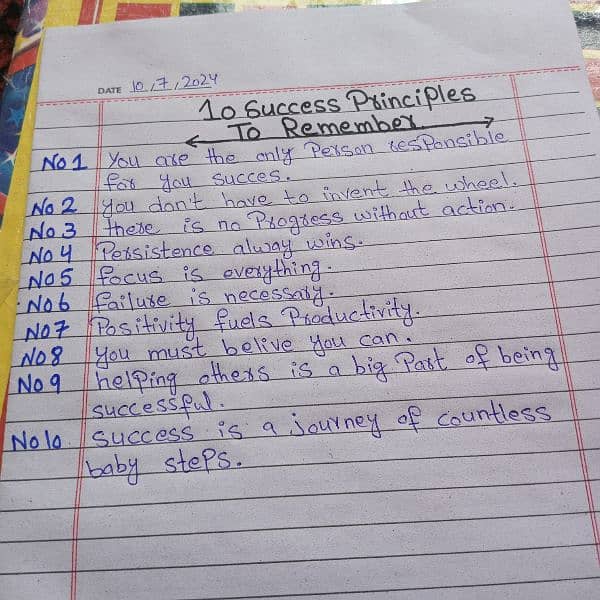 DATE 10/7/2024
10 Success Principles
To Remember
No 1 You are the only Person resPonsible
for you succes.
No 2 you don't have to invent the wheel.
No 3 there is no Progress without action.
No 4 Persistence alway wins.
No 5 focus is everything.
No 6 failure is necessary.
No 7 Positivity fuels Productivity.
No 8 you must belive you can.
No 9 helping others is a big Part of being
successful.
No 10 success is a journey of countless
baby stePs.